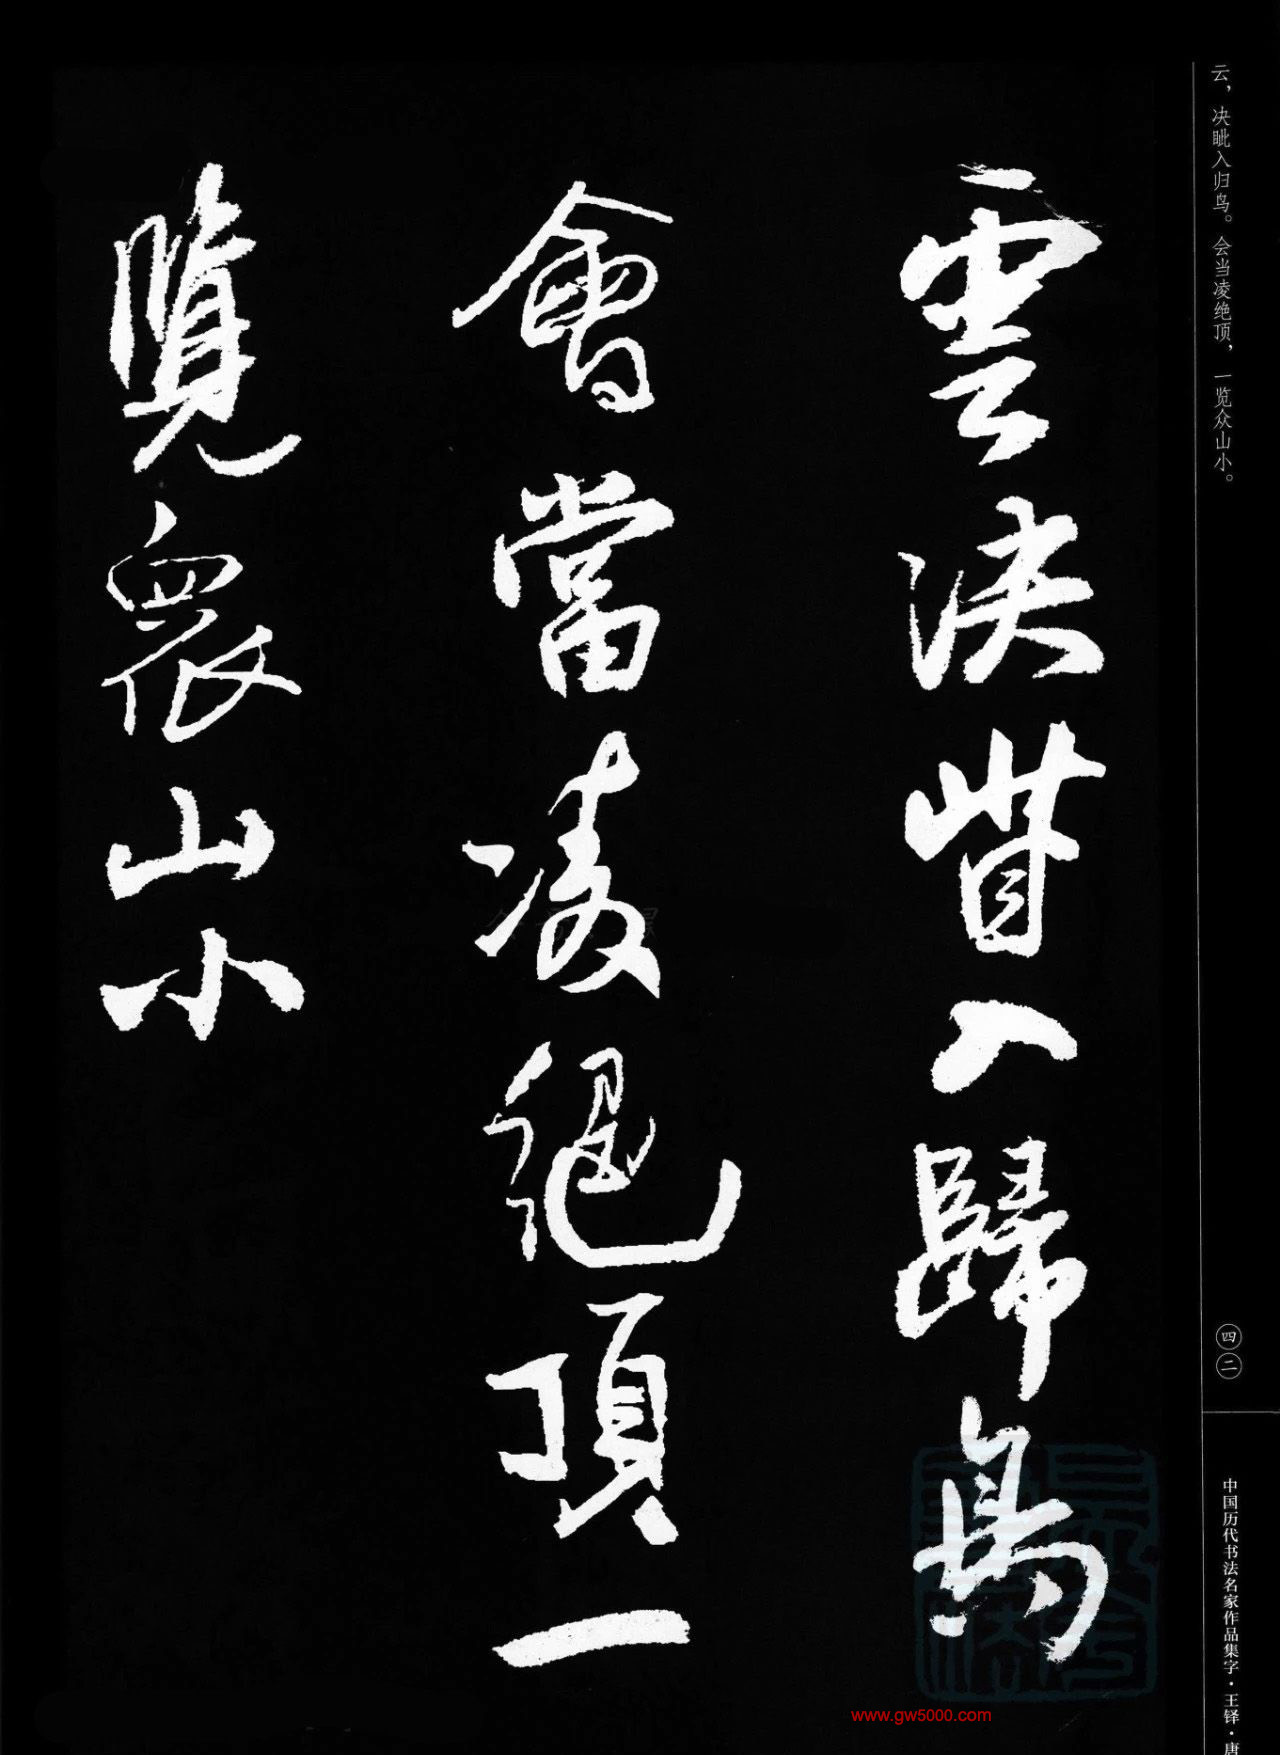 云，决眦入归鸟。会当凌绝顶，一览众山小。
雲決眥入歸鳥
會當凌絕頂一
覽衆山小
四二
中国历代书法名家作品集字·王铎·唐
www.gw5000.com